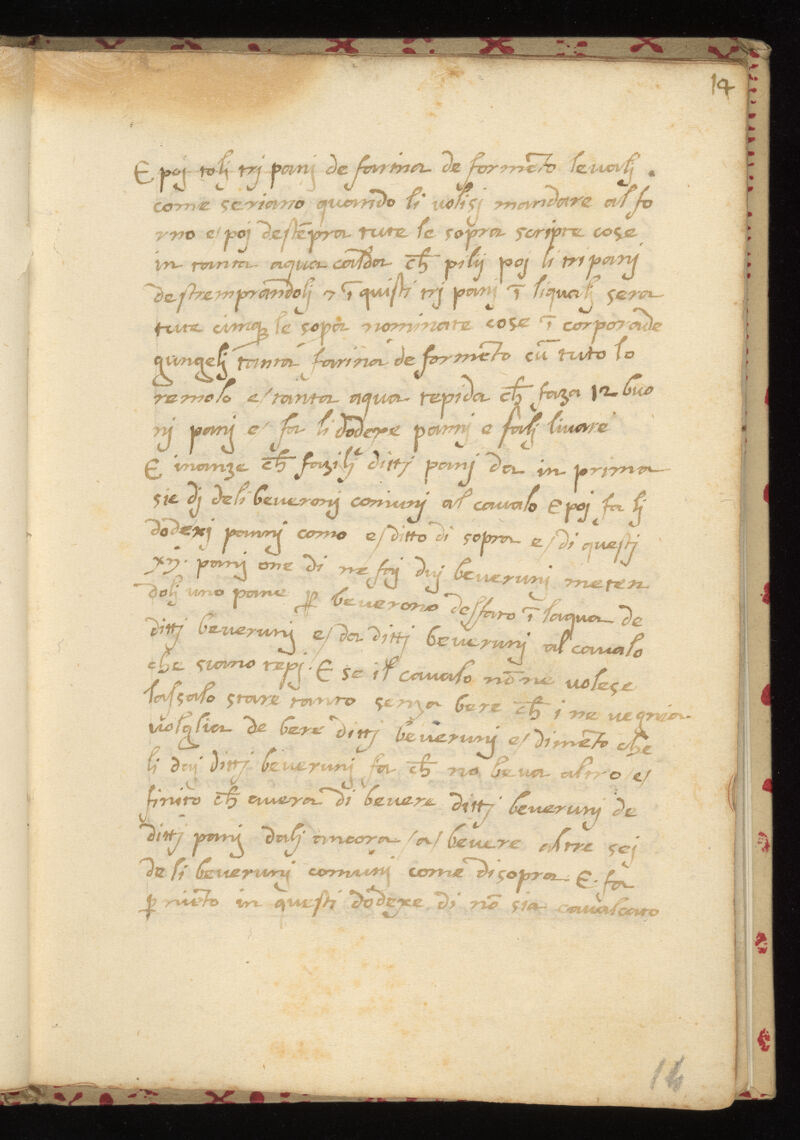 14
E poj tolj trj panj de farina de formēto levalj .
come seriano quando li volisj mandare al fo
rno e/ poj destēpra tute le sopra scripte cose
in tanta aqua calda ch̄ pilij poj li tri panj
destremprandolj ⁊ ī quisti trj panj ī liqualj sera
tute cinq̄ le sopa nominate cose ī corporade
gungelj tanta farina de formēto cū tuto lo
remolo e/ tanta aqua tepida ch̄ faza 12 buo
nj panj e/ fa li dodexe pannj e falj livare
E inanze ch̄ fazilj dittj panj da in prima
sie dj deli beveronj comunj al cavalo E poj fa lj
dodexj pannj como e/ ditto di sopra e/ di questj
xij. panj one di ne faj duj beverunj meten
dolj uno pane ꝑ beverono desfato ī laqua de
dittj beverunj e/ da dittj beverunj al cavalo
che siano tepj. E se il cavalo nō ne volese
lassalo stare tanto senza bere ch̄ i ne vegnia
voluglia de bere dittj beverunj e/ dimēto che
li daj dittj beverunj fa ch̄ no beva altro e/
finito ch̄ avera di bevere dittj beverunj de
dittj panj dalj ancora /a/ bevere altre sej
de li beverunj comunj come disopra E. fa
ꝑ niēto in questi dodexe di nō sia cavalcato
14